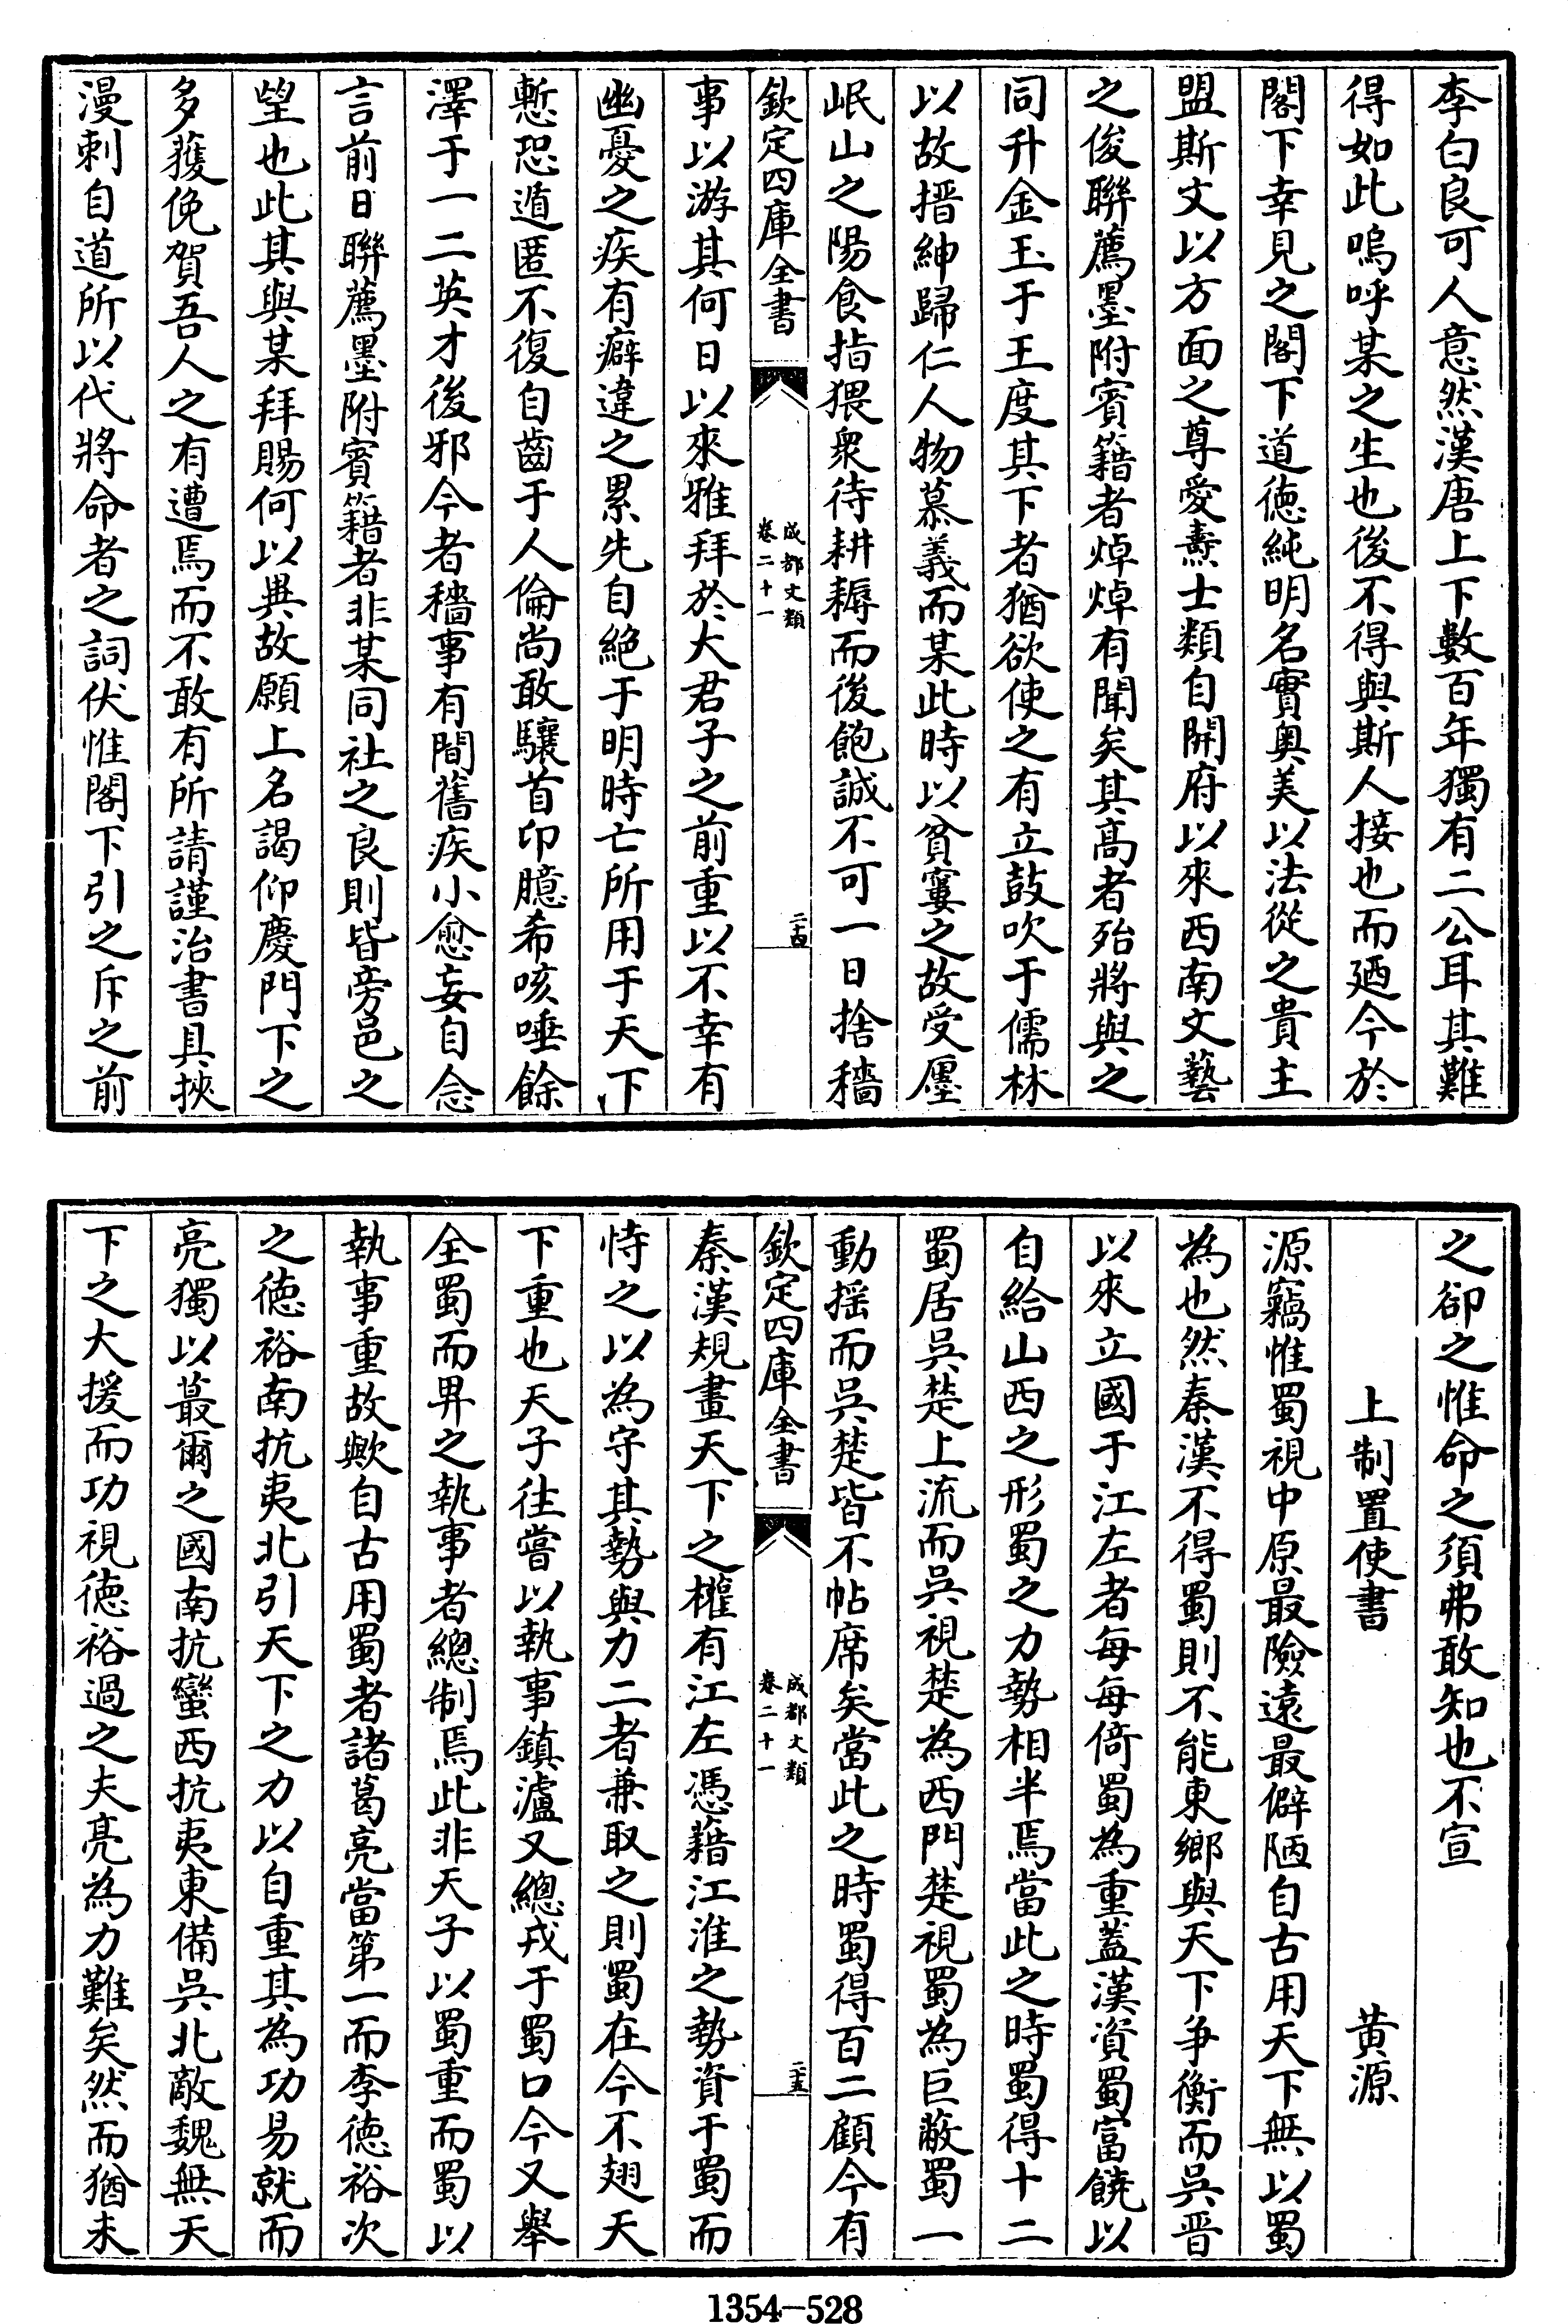 李白良可人意然漢唐上下數百年獨有二公耳其難
得如此嗚呼某之生也後不得與斯人接也而廼今於
閣下幸見之閣下道徳純明名實奥美以法從之貴主
盟斯文以方面之尊愛燾士類自開府以來西南文藝
之俊聯薦墨附賓籍者焯焯有聞矣其髙者殆將與之
同升金玉于王度其下者猶欲使之有立鼓吹于儒林
以故搢紳歸仁人物慕義而某此時以貧窶之故受廛
岷山之陽食指猥衆待耕耨而後飽誠不可一日捨穡
欽定四庫全書
成都文類
卷二十一
二十四
事以游其何日以來雅拜於大君子之前重以不幸有
幽憂之疾有癖違之累先自絶于明時亡所用于天下
慙恐遁匿不復自齒于人倫尚敢驤首印臆希咳唾餘
澤于一二英才後邪今者穡事有間舊疾小愈妄自念
言前日聯薦墨附賓籍者非某同社之良則皆旁邑之
望也此其與某拜賜何以異故願上名謁仰慶門下之
多獲俛賀吾人之有遭焉而不敢有所請謹治書具挾
漫刺自道所以代將命者之詞伏惟閣下引之斥之前
之卻之惟命之須弗敢知也不宣
上制置使書 黄源
源竊惟蜀視中原最險遠最僻陋自古用天下無以蜀
為也然秦漢不得蜀則不能東鄉與天下争衡而吳晋
以來立國于江左者每每倚蜀為重蓋漢資蜀富饒以
自給山西之形蜀之力勢相半焉當此之時蜀得十二
蜀居吳楚上流而吳視楚為西門楚視蜀為巨蔽蜀一
動揺而吳楚皆不帖席矣當此之時蜀得百二顧今有
欽定四庫全書
成都文類
卷二十一
二十五
秦漢規畫天下之權有江左憑藉江淮之勢資于蜀而
恃之以為守其勢與力二者兼取之則蜀在今不翅天
下重也天子往嘗以執事鎮瀘又總戎于蜀口今又舉
全蜀而畀之執事者總制焉此非天子以蜀重而蜀以
執事重故歟自古用蜀者諸葛亮當第一而李徳裕次
之徳裕南抗夷北引天下之力以自重其為功易就而
亮獨以蕞爾之國南抗蠻西抗夷東備吳北敵魏無天
下之大援而功視徳裕過之夫亮為力難矣然而猶未
1354—528